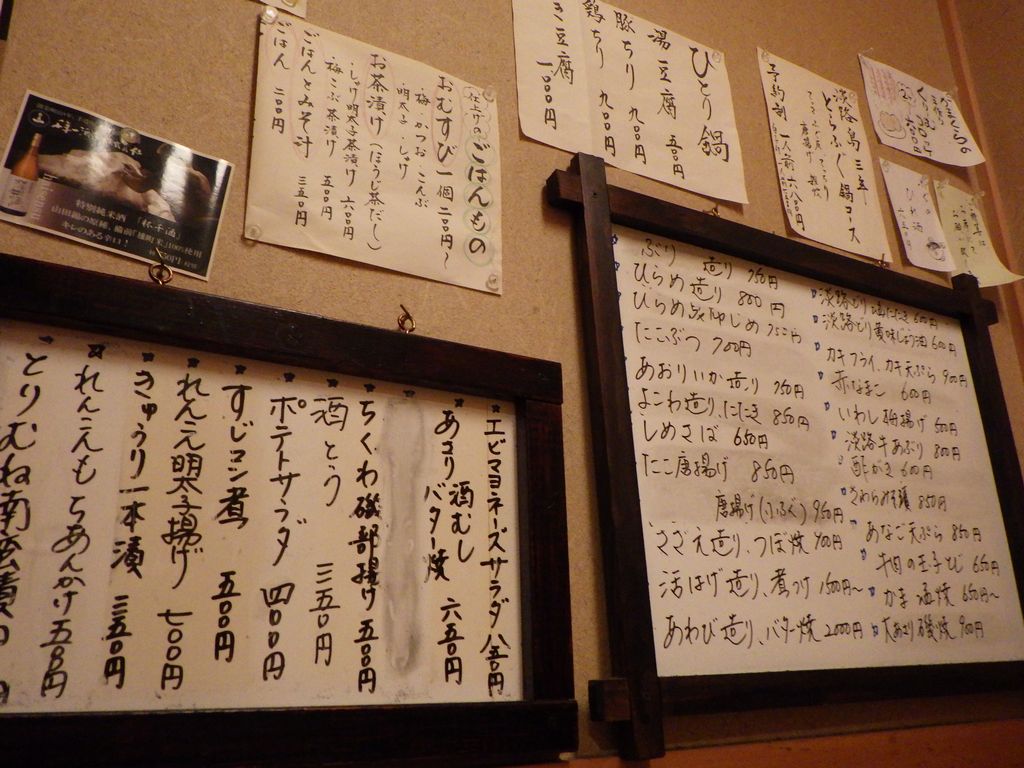 特別純米酒 「杯千酒」
山田錦の原種、備前「雄町米」100%使用
キレのある辛口!
仕上げのごはんもの
おむすび 一個 二〇〇円〜
梅 かつお こんぶ
明太子 しゃけ
お茶漬け (ほうじ茶だし)
・しゃけ明太子茶漬け 六〇〇円
梅こぶ茶漬け 五〇〇円
ごはんとみそ汁 三五〇円
ごはん 二〇〇円
ひとり鍋
湯豆腐 五〇〇円
豚ちり 九〇〇円
鶏ちり 九〇〇円
き豆腐 一〇〇〇円
淡路島三年
とらふぐ鍋コース
予約制 一人前 六八〇〇円
ひれ酒
エビマヨネーズサラダ 八五〇円
あさり 酒むし
バター焼 六五〇円
ちくわ磯部揚げ 五〇〇円
酒とう 三五〇円
ポテトサラダ 四〇〇円
すじコン煮 五〇〇円
れんこん明太子揚げ 七〇〇円
きゅうり一本漬 三五〇円
れんこんもちあんかけ 五〇〇円
とりむね南蛮漬
ぶり 造り 750円
ひらめ造り 800円
ひらめ昆布じめ
たこぶつ 700円
あおりいか造り 750円
よこわ造り、たたき 850円
しめさば 650円
たこ唐揚げ 850円
唐揚げ(ふぐ) 950円
さざえ造り、つぼ焼 900円
活はげ造り、煮つけ 1500円〜
あわび造り、バター焼 2000円
淡路とり 塩たたき 600円
淡路とり黄味じょう油 600円
カキフライ、カキ天ぷら 900円
赤なまこ 600円
いわし梅揚げ 600円
淡路牛あぶり 800円
酢がき 600円
さわら 850円
あなご天ぷら 850円
玉子とじ 650円
かま 塩焼 650円〜
大あさり磯焼 900円